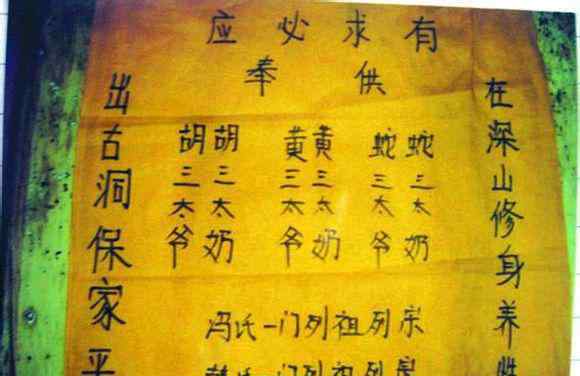 有求必应
供奉
在深山修身养性
蛇三太奶
蛇三太爷
黄三太奶
黄三太爷
胡三太奶
胡三太爷
出古洞保家平
冯氏一门列祖列宗
氏一门列祖列宗